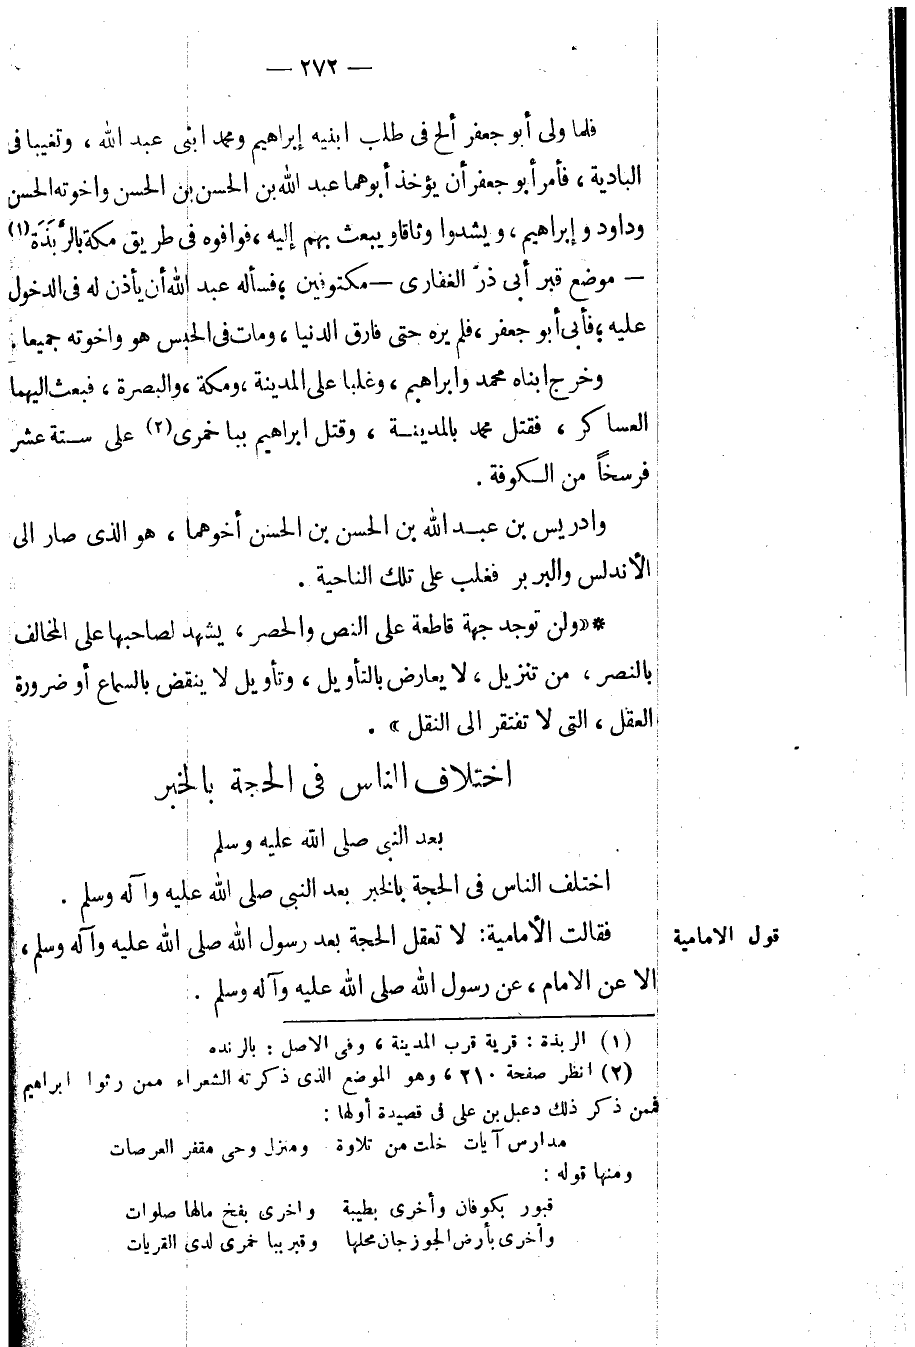 — ٢٧٢ —
فلما ولى أبو جعفر ألح فى طلب ابنيه إبراهيم ومحمد ابنى عبد الله ، وتغيبا فى
البادية ، فأمر أبو جعفر أن يؤخذ أبوهما عبد الله بن الحسن بن الحسن واخوته الحسن
وداود و إبراهيم ، ويشدوا وثاقا ويبعث بهم إليه ، فوافوه فى طريق مكة بالرَّبَذَة (١)
— موضع قبر أبى ذرّ الغفارى — مكتوفين ؛ فسأله عبد الله أن يأذن له فى الدخول
عليه ؛ فأبى أبو جعفر ، فلم يره حتى فارق الدنيا ، ومات فى الحبس هو واخوته جميعا .
وخرج ابناه محمد وابراهيم ، وغلبا على المدينة ، ومكة ، والبصرة ، فبعث اليهما
العساكر ، فقتل محمد بالمدينـة ، وقتل ابراهيم بباخمرى (٢) على ستة عشر
فرسخاً من الـكوفة .
وادريس بن عبـد الله بن الحسن بن الحسن أخوهما ، هو الذى صار الى
الأندلس والبربر فغلب على تلك الناحية .
* «ولن توجد جهة قاطعة على النص والحصر ، يشهد لصاحبها على المخالف
بالنصر ، من تنزيل ، لا يعارض بالتأويل ، وتأويل لا ينقض بالسماع أو ضرورة
العقل ، التى لا تفتقر الى النقل » .
اختلاف الناس فى الحجة بالخبر
بعد النبى صلى الله عليه وسلم
اختلف الناس فى الحجة بالخبر بعد النبى صلى الله عليه وآله وسلم .
قول الامامية
فقالت الأمامية : لا تعقل الحجة بعد رسول الله صلى الله عليه وآله وسلم ،
الا عن الامام ، عن رسول الله صلى الله عليه وآله وسلم .
(١) الربذة : قرية قرب المدينة ، وفى الاصل : بالرنده
(٢) انظر صفحة ٢١٠ ، وهو الموضع الذى ذكرته الشعراء ممن رثوا ابراهيم
فممن ذكر ذلك دعبل بن على فى قصيدة أولها :
مدارس آيات خلت من تلاوة ومنزل وحى مقفر العرصات
ومنها قوله :
قبور بكوفان وأخرى بطيبة واخرى بفخ مالها صلوات
وأخرى بأرض الجوزجان محلها وقبر بباخمرى لدى القريات